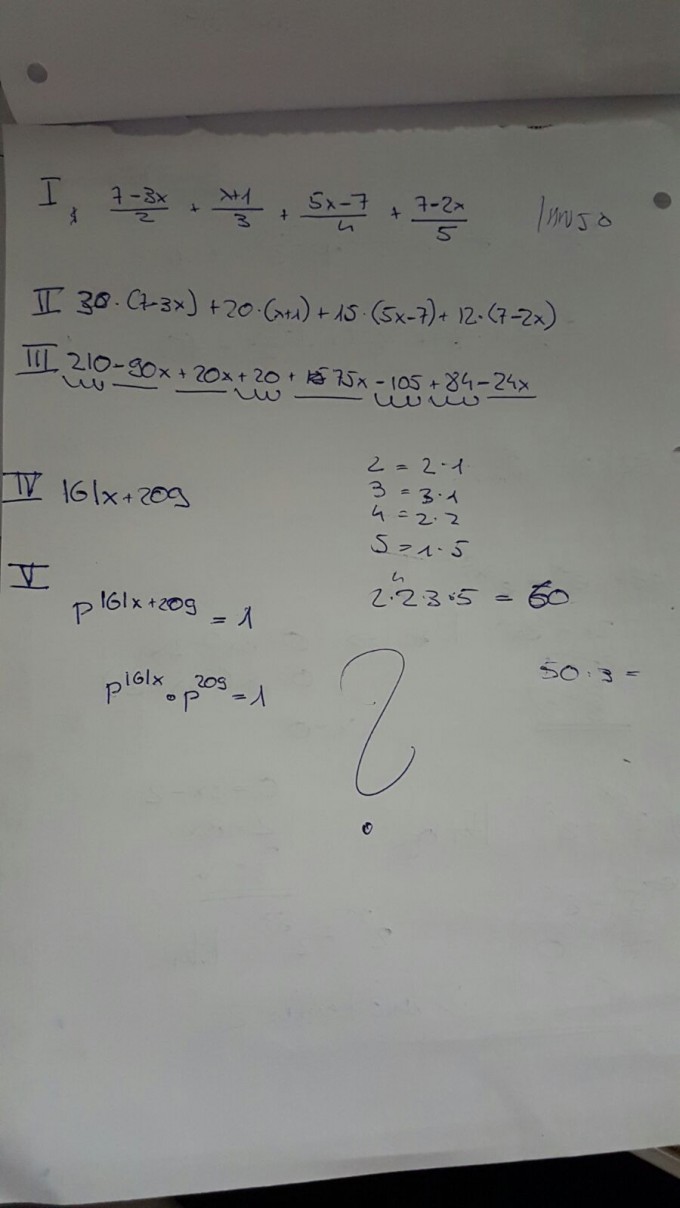 I, (7-3x)/2 + (x+1)/3 + (5x-7)/4 + (7-2x)/5
II 30·(7-3x) + 20·(x+1) + 15·(5x-7) + 12·(7-2x)
III 210-90x + 20x + 20 + 75x - 105 + 84 - 24x
IV |6|x+209
2 = 2·1
3 = 3·1
4 = 2·2
5 = 1·5
V
p^|6|x+209 = 1
4
2·2·3·5 = 60
p^|6|x · p^209 = 1
50·3 =
?